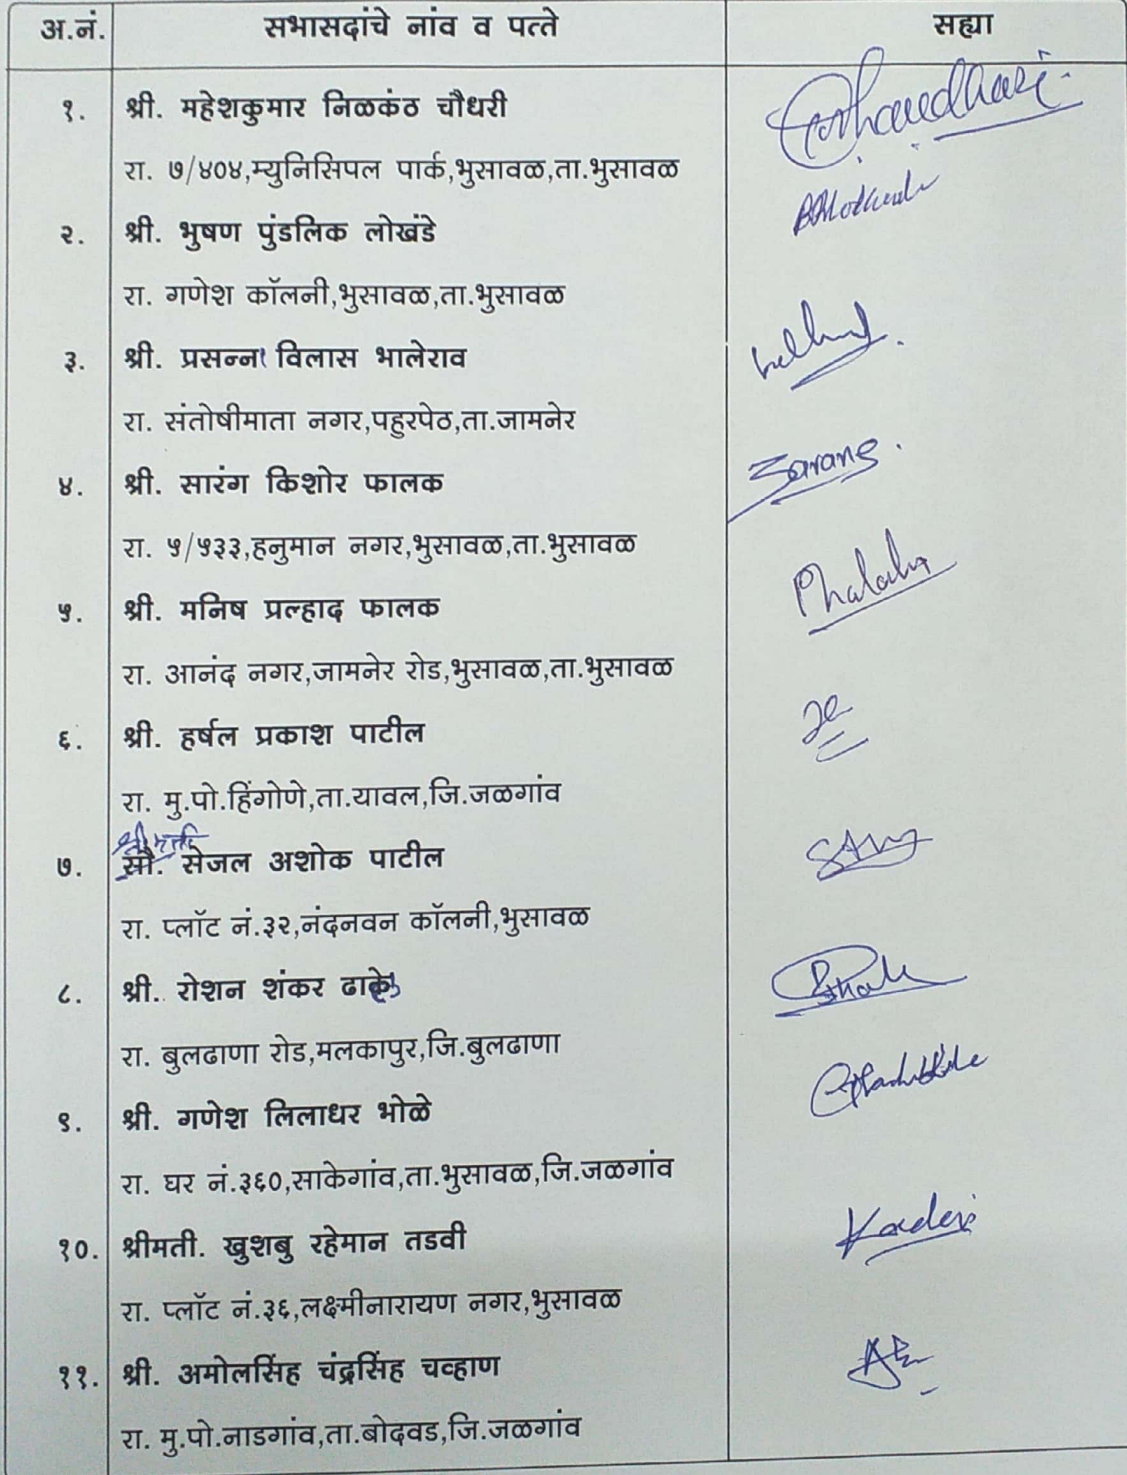 अ.नं. सभासदांचे नांव व पत्ते सह्या
१. श्री. महेशकुमार निळकंठ चौधरी
रा. ७/४०४,म्युनिसिपल पार्क,भुसावळ,ता.भुसावळ
२. श्री. भुषण पुंडलिक लोखंडे
रा. गणेश कॉलनी,भुसावळ,ता.भुसावळ
३. श्री. प्रसन्ना विलास भालेराव
रा. संतोषीमाता नगर,पहुरपेठ,ता.जामनेर
४. श्री. सारंग किशोर फालक Sarang.
रा. ५/५३३,हनुमान नगर,भुसावळ,ता.भुसावळ
५. श्री. मनिष प्रल्हाद फालक
रा. आनंद नगर,जामनेर रोड,भुसावळ,ता.भुसावळ
६. श्री. हर्षल प्रकाश पाटील
रा. मु.पो.हिंगोणे,ता.यावल,जि.जळगांव
श्रीमती
७. सौ. सेजल अशोक पाटील
रा. प्लॉट नं.३२,नंदनवन कॉलनी,भुसावळ
८. श्री. रोशन शंकर ढाके
रा. बुलढाणा रोड,मलकापुर,जि.बुलढाणा
९. श्री. गणेश लिलाधर भोळे
रा. घर नं.३६०,साकेगांव,ता.भुसावळ,जि.जळगांव
१०. श्रीमती. खुशबु रहेमान तडवी
रा. प्लॉट नं.३६,लक्ष्मीनारायण नगर,भुसावळ
११. श्री. अमोलसिंह चंद्रसिंह चव्हाण
रा. मु.पो.नाडगांव,ता.बोदवड,जि.जळगांव